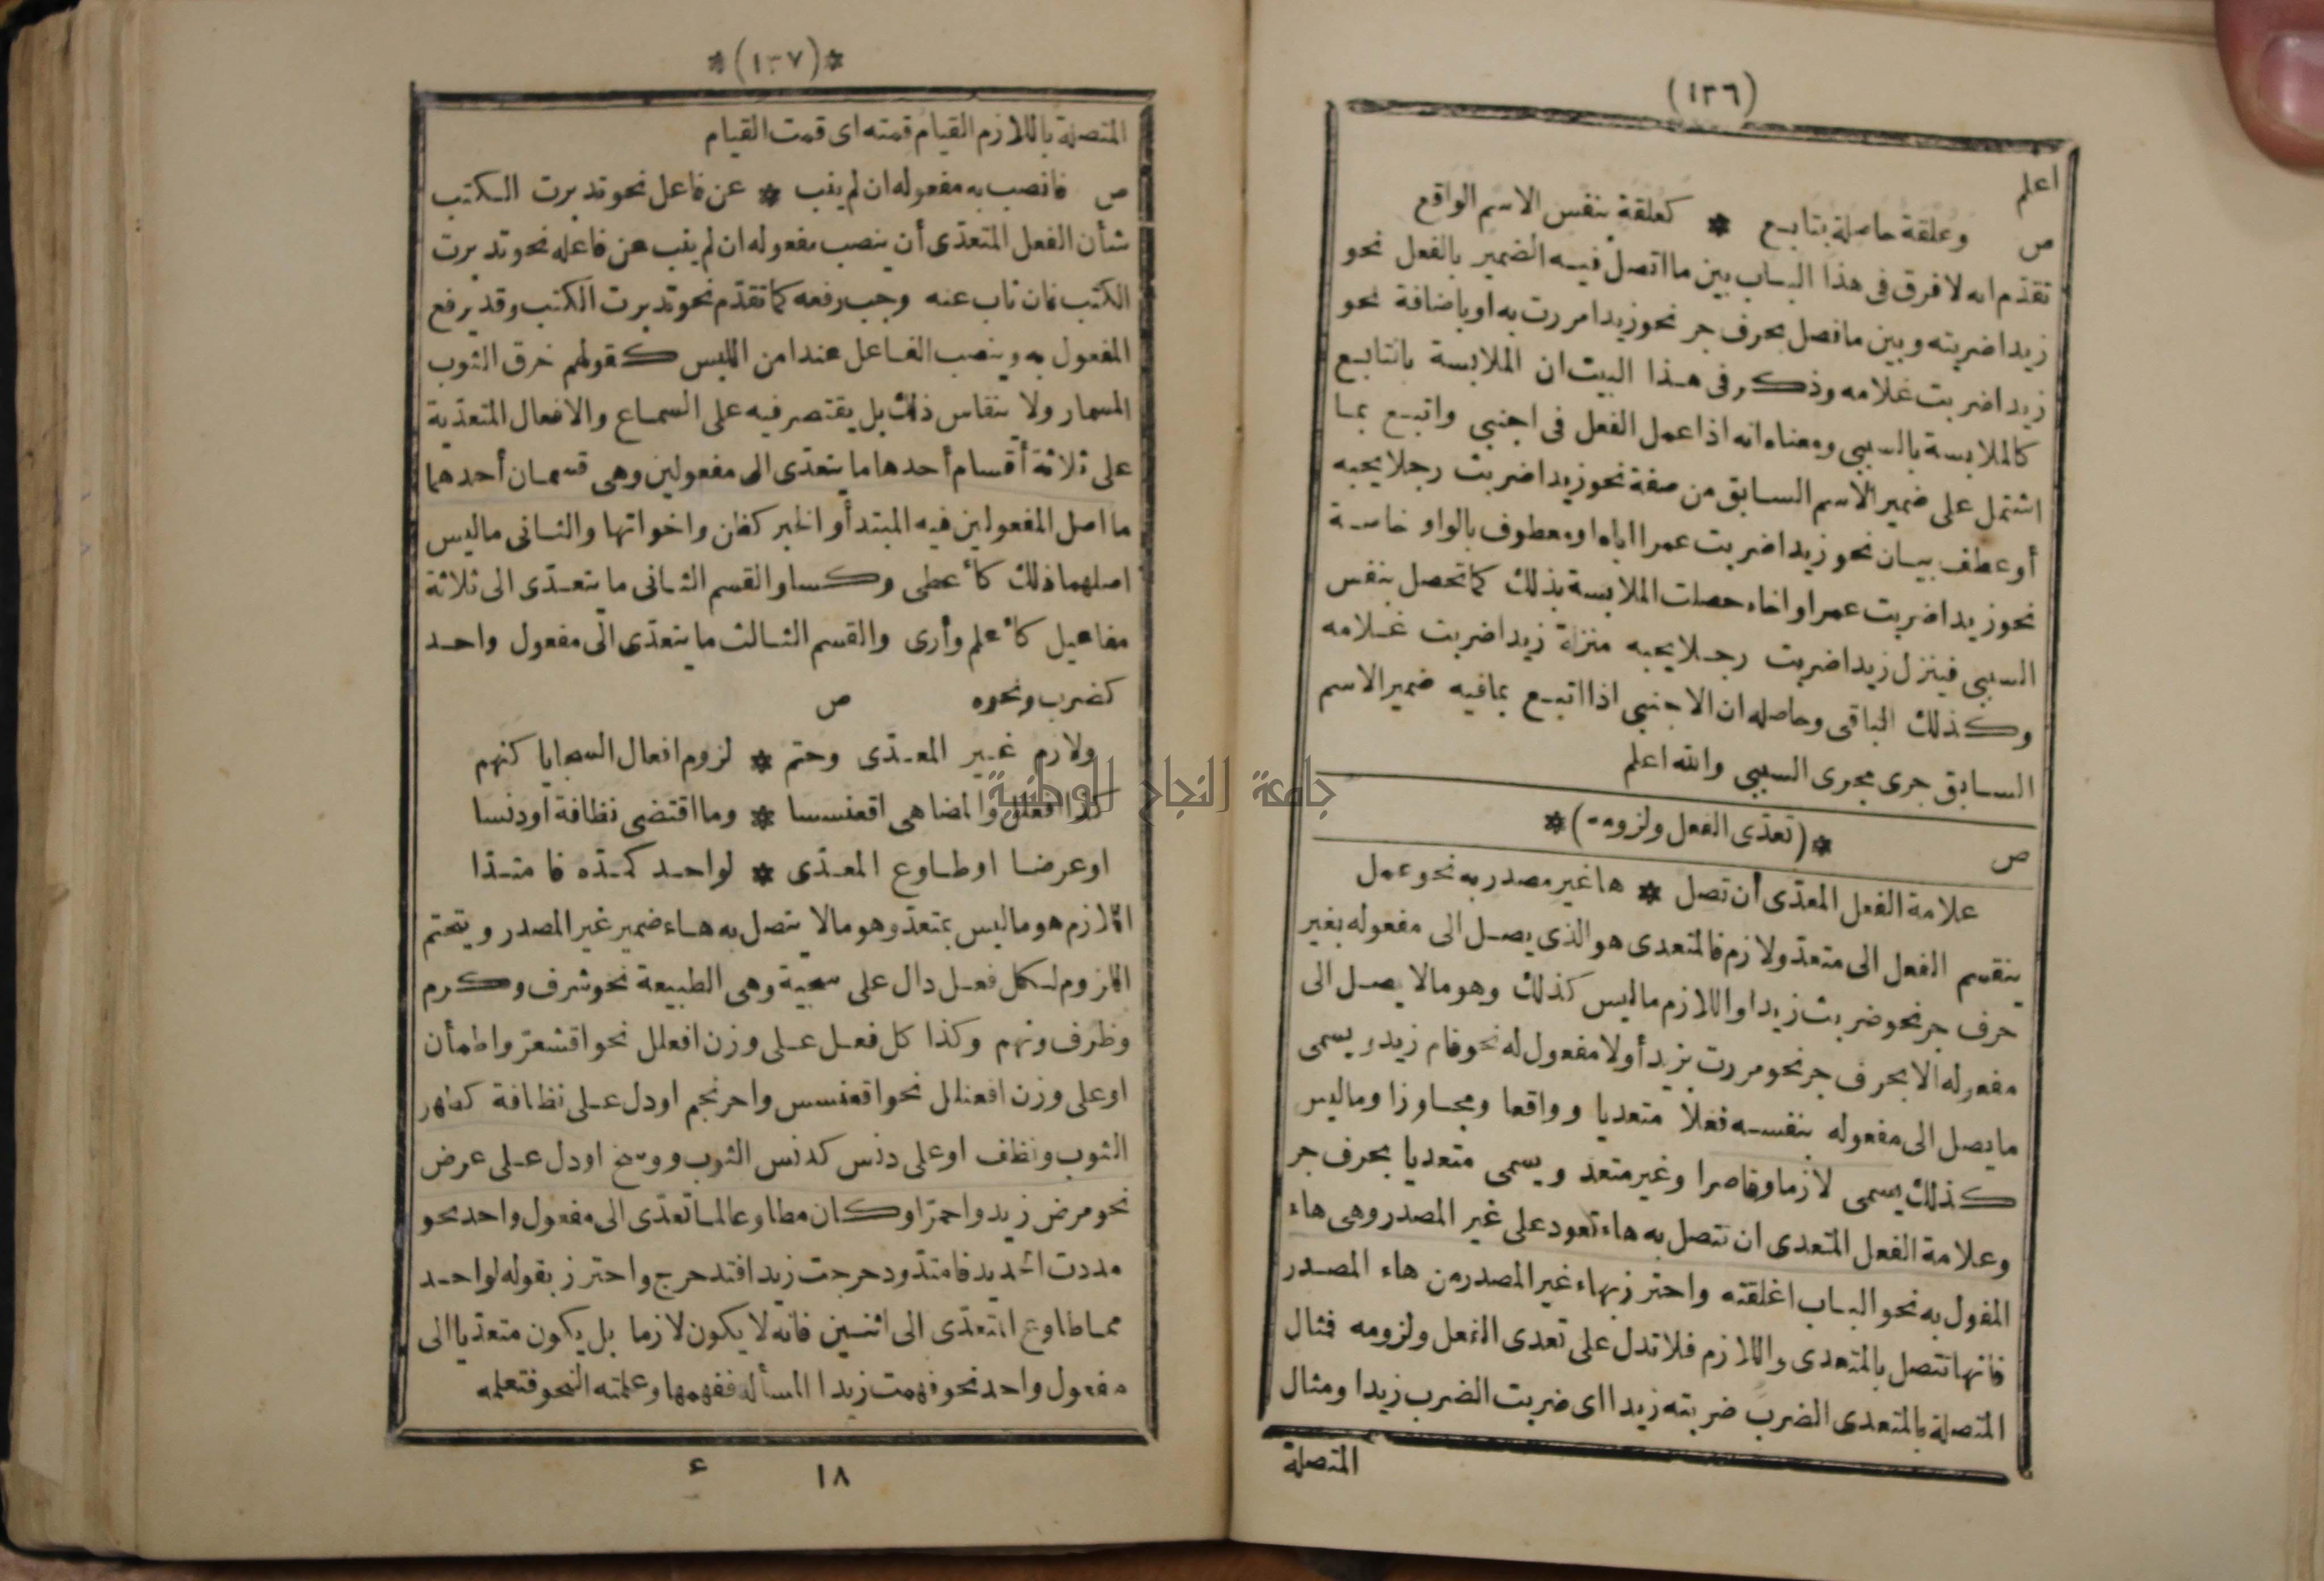 (١٣٦)
اعلم
ص وعلقة حاصلة بتابع * كعلقة بنفس الاسم الواقع
تقدّم انه لا فرق فى هذا الباب بين ما اتصل فيه الضمير بالفعل نحو
زيدا ضربته وبين ما فصل بحرف جر نحو زيدا مررت به او باضافة نحو
زيدا ضربت غلامه وذكر فى هذا البيت ان الملابسة بالتابع
كالملابسة بالسببى ومعناه انه اذا عمل الفعل فى اجنبى واتبع بما
اشتمل على ضمير الاسم السابق من صفة نحو زيدا ضربت رجلا يحبه
أو عطف بيان نحو زيدا ضربت عمرا اباه او معطوف بالواو خاصة
نحو زيدا ضربت عمرا واخاه حصلت الملابسة بذلك كما تحصل بنفس
السببى فينزل زيدا ضربت رجلا يحبه منزلة زيدا ضربت غلامه
وكذلك الباقى وحاصله ان الاجنبى اذا اتبع بما فيه ضمير الاسم
السابق جرى مجرى السببى والله اعلم
*(تعدّى الفعل ولزومه)*
ص
علامة الفعل المعدّى أن تصل * ها غير مصدر به نحو عمل
ينقسم الفعل الى متعدّ ولازم فالمتعدى هو الذى يصل الى مفعوله بغير
حرف جر نحو ضربت زيدا واللازم ما ليس كذلك وهو ما لا يصل الى
مفعوله الا بحرف جر نحو مررت بزيد أو لا مفعول له نحو قام زيد ويسمى
ما يصل الى مفعوله بنفسه فعلا متعديا وواقعا ومجاوزا وما ليس
كذلك يسمى لازما وقاصرا وغير متعد ويسمى متعديا بحرف جر
وعلامة الفعل المتعدى ان تتصل به هاء تعود على غير المصدر وهى هاء
المفول به نحو الباب اغلقته واحترز بهاء غير المصدر من هاء المصدر
فانها تتصل بالمتعدى واللازم فلا تدل على تعدى الفعل ولزومه فمثال
المتصلة بالمتعدى الضرب ضربته زيدا اى ضربت الضرب زيدا ومثال
المتصلة
*(١٣٧)*
المتصلة باللازم القيام قمته اى قمت القيام
ص فانصب به مفعوله ان لم ينب * عن فاعل نحو تدبرت الكتب
شأن الفعل المتعدّى أن ينصب مفعوله ان لم ينب عن فاعله نحو تدبرت
الكتب فان ناب عنه وجب رفعه كما تقدّم نحو تدبرت الكتب وقد يرفع
المفعول به وينصب الفاعل عند امن اللبس كقولهم خرق الثوب
المسمار ولا ينقاس ذلك بل يقتصر فيه على السماع والافعال المتعدّية
على ثلاثة أقسام أحدها ما يتعدّى الى مفعولين وهى قسمان أحدهما
ما اصل المفعولين فيه المبتدأ والخبر كظن واخواتها والثانى ما ليس
اصلهما ذلك كأعطى وكسا والقسم الثانى ما يتعدّى الى ثلاثة
مفاعيل كأعلم وأرى والقسم الثالث ما يتعدّى الى مفعول واحد
كضرب ونحوه ص
ولازم غير المعدّى وحتم * لزوم افعال السجايا كنهم
كذا افعلل والمضاهى اقعنسسا * وما اقتضى نظافة او دنسا
او عرضا او طاوع المعدّى * لواحد كمدّه فامتدّا
اللازم هو ما ليس بمتعدّ وهو ما لا يتصل به هاء ضمير غير المصدر ويتحتم
اللزوم لكل فعل دال على سجية وهى الطبيعة نحو شرف وكرم
وظرف ونهم وكذا كل فعل على وزن افعلل نحو اقشعرّ واطمأن
او على وزن افعنلل نحو اقعنسس واحرنجم او دل على نظافة كطهر
الثوب ونظف او على دنس كدنس الثوب ووسخ او دل على عرض
نحو مرض زيد واحمرّ او كان مطاوعا لما تعدّى الى مفعول واحد نحو
مددت الحديد فامتدّ ودحرجت زيدا فتدحرج واحترز بقوله لواحد
مما طاوع المتعدّى الى اثنين فانه لا يكون لازما بل يكون متعدّيا الى
مفعول واحد نحو فهمت زيدا المسألة ففهمها وعلمته النحو فتعلمه
١٨ ع
جامعة النجاح الوطنية